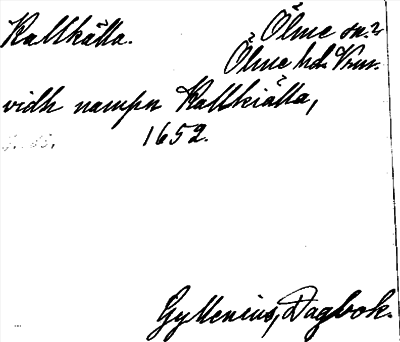 Kallkälla. Ölme sn.?
Ölme hd. Vrm.
vidh nampn Kallkiälla,
1652.
Gyllenius, Dagbok.